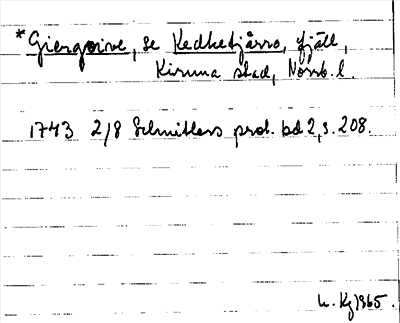 *Giergoive, se Kedketjårro, fjäll,
Kiruna stad, Norrb. l.
1743 2/8 Schnitlers prot. bd 2, s. 208.
Kg 1965.